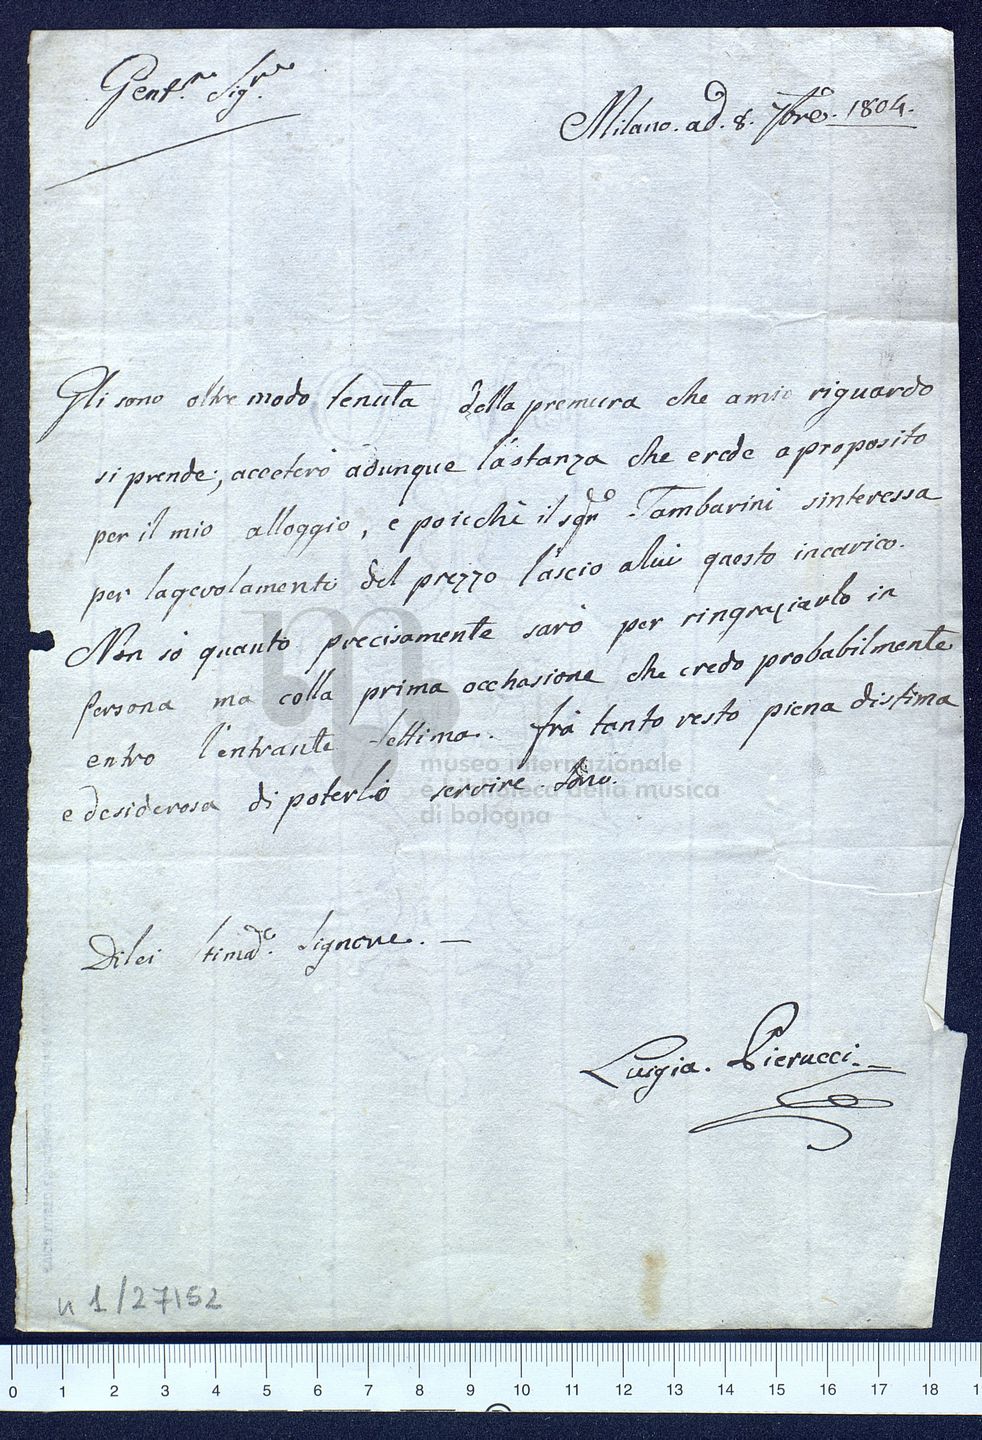 Gent.mo Sig.re
Milano. ad. 8. 7bre. 1804.
Gli sono oltre modo tenuta della premura che amio riguardo
si prende, acceterò adunque lastanza che crede aproposito
per il mio alloggio, e poicchè il sgr Tambarini sinteressa
per lagevolamento del prezzo lascio alui questo incarico.
Non sò quanto precisamente sarò per ringraziarlo in
Persona ma colla prima occhasione che credo probabilmente
entro l'entrante settima. frà tanto resto piena distima
e desiderosa di poterlo servire sono.
museo internazionale
e biblioteca della musica
di bologna
Dilei stimade. Signore. —
Luigia. Pierucci.
n 1/27152
0 1 2 3 4 5 6 7 8 9 10 11 12 13 14 15 16 17 18